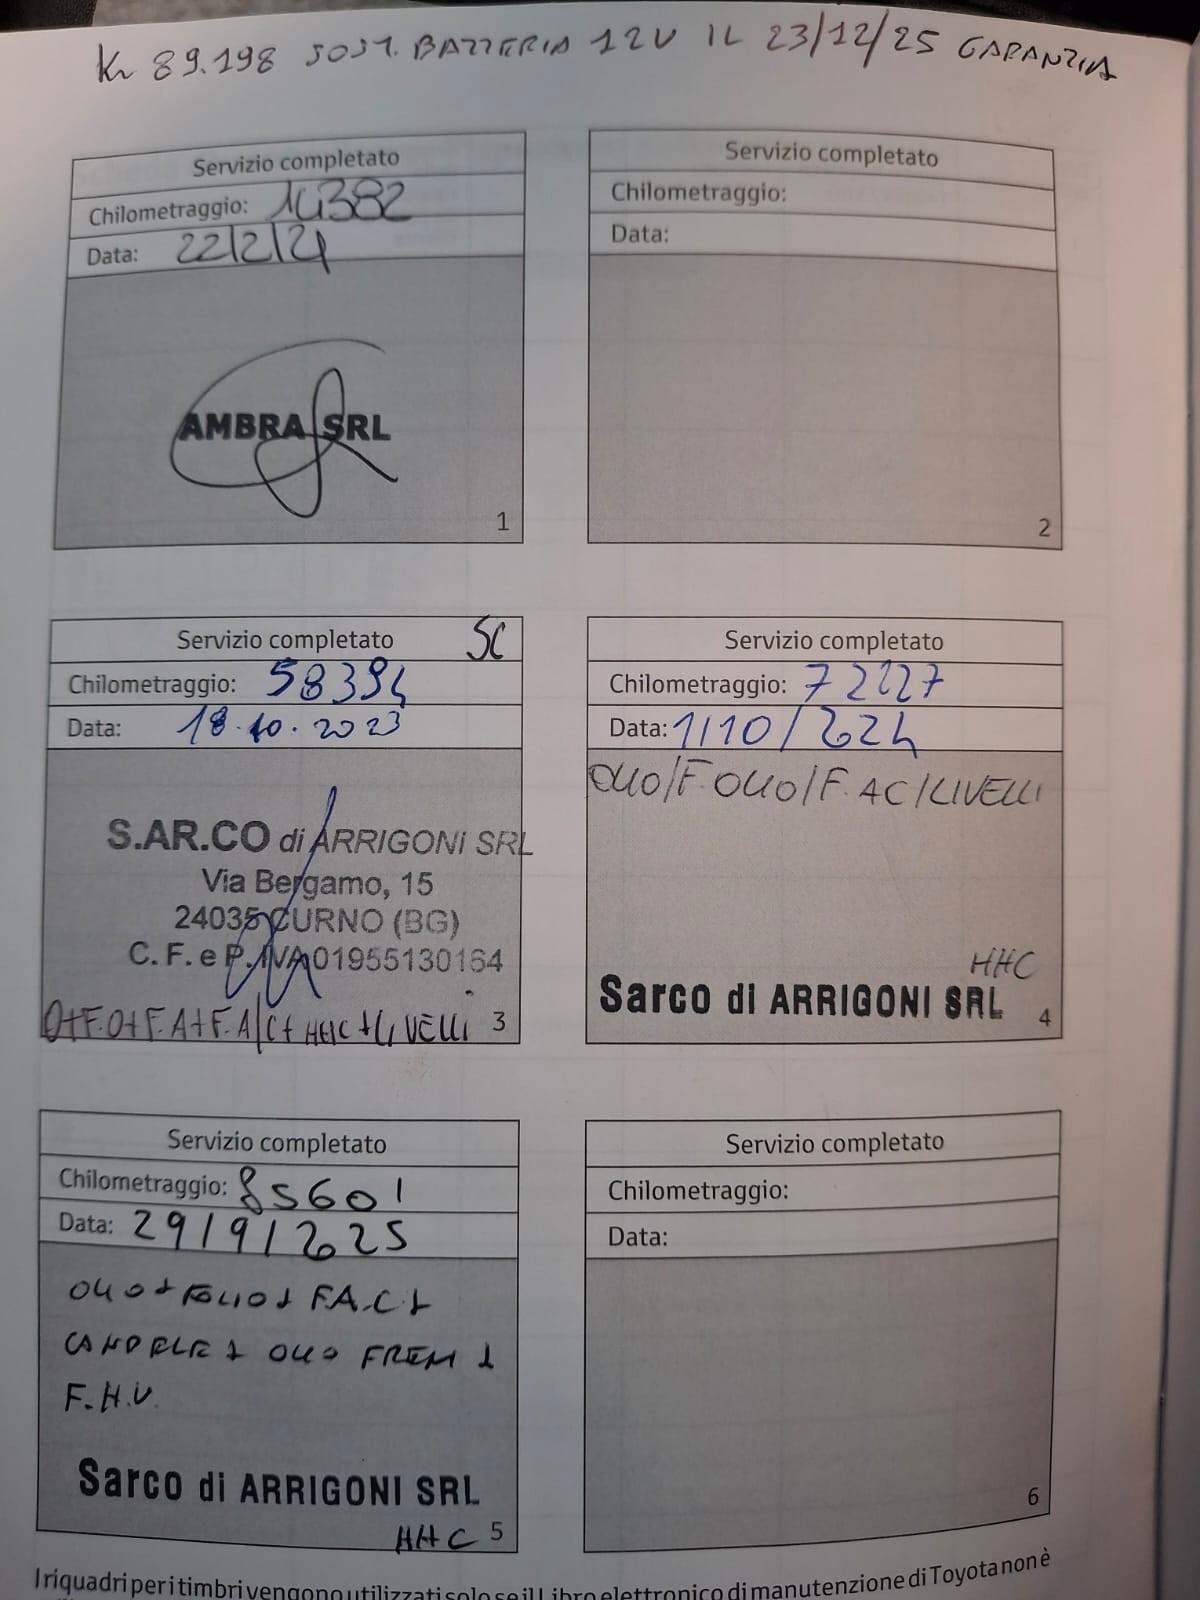 Km 89.198 SOST. BATTERIA 12V IL 23/12/25 GARANZIA
Servizio completato
Chilometraggio: 14382
Data: 22/2/21
AMBRA SRL
1
Servizio completato
Chilometraggio:
Data:
2
Servizio completato SC
Chilometraggio: 58394
Data: 18.10.2023
S.AR.CO di ARRIGONI SRL
Via Bergamo, 15
24035 CURNO (BG)
C. F. e P. IVA 01955130164
O+F.O+F.A+F.A/C+HHC+LIVELLI 3
Servizio completato
Chilometraggio: 72227
Data: 1/10/2024
OLIO/F.OLIO/F.AC/LIVELLI
HHC
Sarco di ARRIGONI SRL 4
Servizio completato
Chilometraggio: 85601
Data: 29/9/2025
OLIO+FOLIO+F.A.C+
CANDELE+OLIO FRENI+
F.H.V.
Sarco di ARRIGONI SRL
HHC 5
Servizio completato
Chilometraggio:
Data:
6
I riquadri per i timbri vengono utilizzati solo se il Libro elettronico di manutenzione di Toyota non è